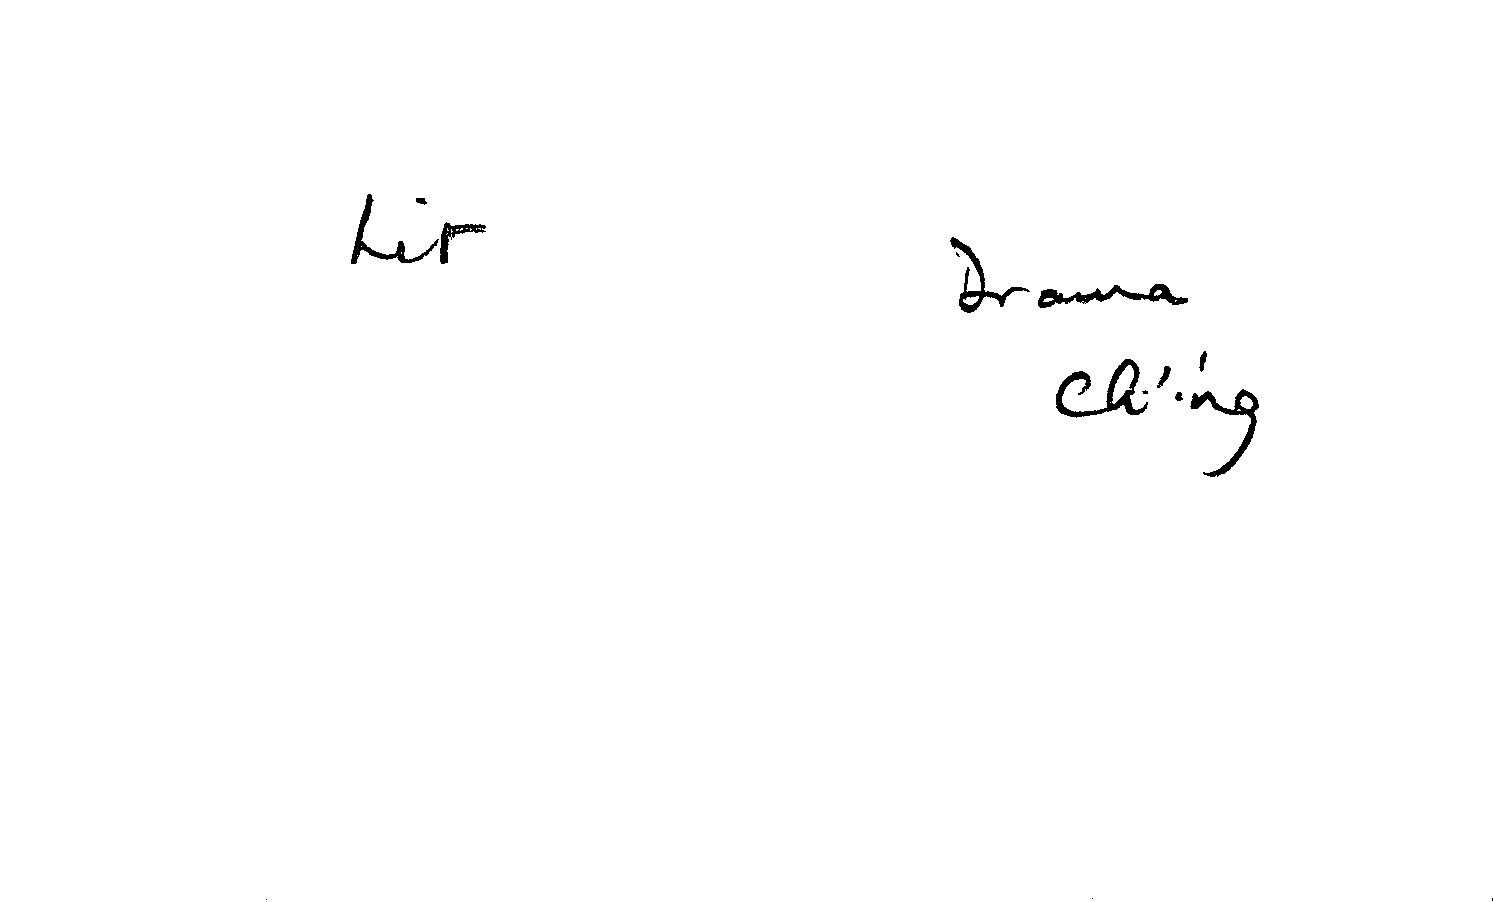 Lit
Drama
Ch'ing